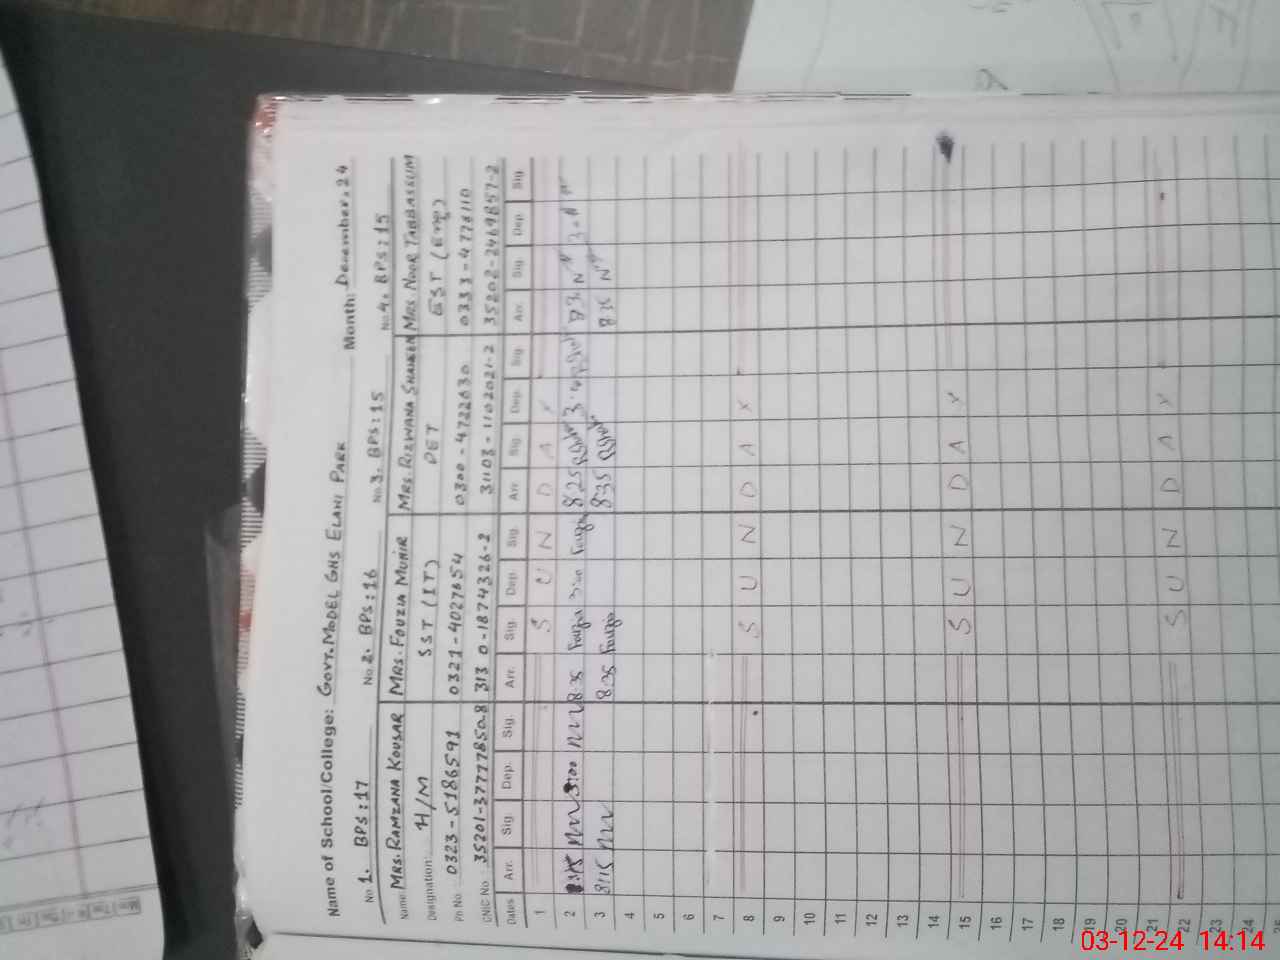 Name of School/College: GOVT. MODEL GHS ELAHI PARK Month: December, 24
No 1. BPS:17 No 2. BPS:16 No 3. BPS:15 No 4. BPS:15
Name: MRS. RAMZANA KOUSAR MRS. FOUZIA MUNIR MRS. RIZWANA SHAHEEN MRS. NOOR TABBASSUM
Designation: H/M SST (IT) DET EST (Eng)
Ph No 0323-5186591 0321-4027654 0300-4722630 0333-4778110
CNIC No 35201-377778508 313 0-1874326-2 31103-1102021-2 35202-2469857-2
Dates Arr. Sig. Dep. Sig. Arr. Sig. Dep Sig. Arr Sig. Dep. Sig. Arr. Sig. Dep. Sig
1 S U N D A Y
2 3:00 8:35 Fouzia 3:00 Fouzia 8:25
3 8:15 8:35 Fouzia 8:35 8:35
4
5
6
7
8 S U N D A Y
9
10
11
12
13
14
15 S U N D A Y
16
17
18
19
20
21
22 S U N D A Y
23
24
03-12-24 14:14